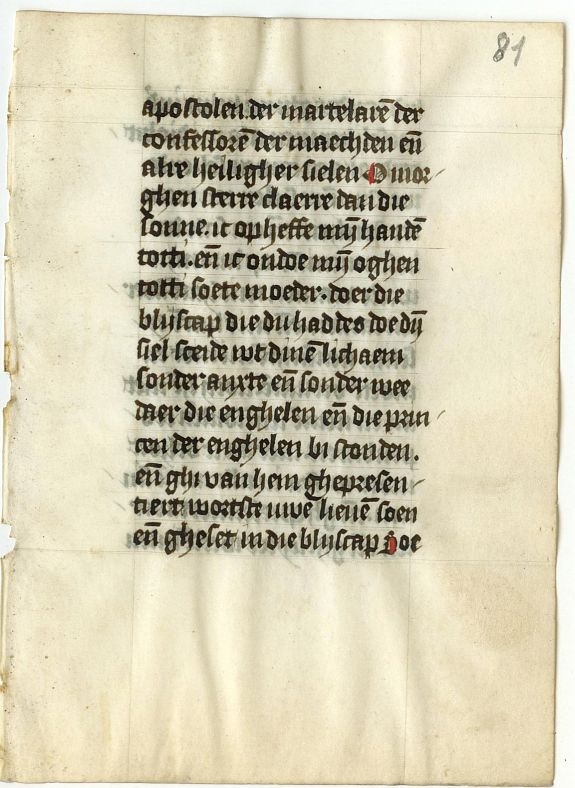 81
apostolen. der martelarē der
confessorē der maechden eñ
alre heiligher sielen O mor-
ghen sterre claerre dan die
sonne. ic opheffe mÿ handē
totti. eñ ic ondoe mÿ oghen
totti soete moeder. doer die
blijscap die du haddes doe dÿ
siel sceide wt dinē lichaem
sonder anxte eñ sonder wee
daer die enghelen eñ die prin-
cen der enghelen bi stonden.
eñ ghi van hem ghepresen-
tiert wortste uwē lieuē soen
eñ gheset in die blijscap Hoe